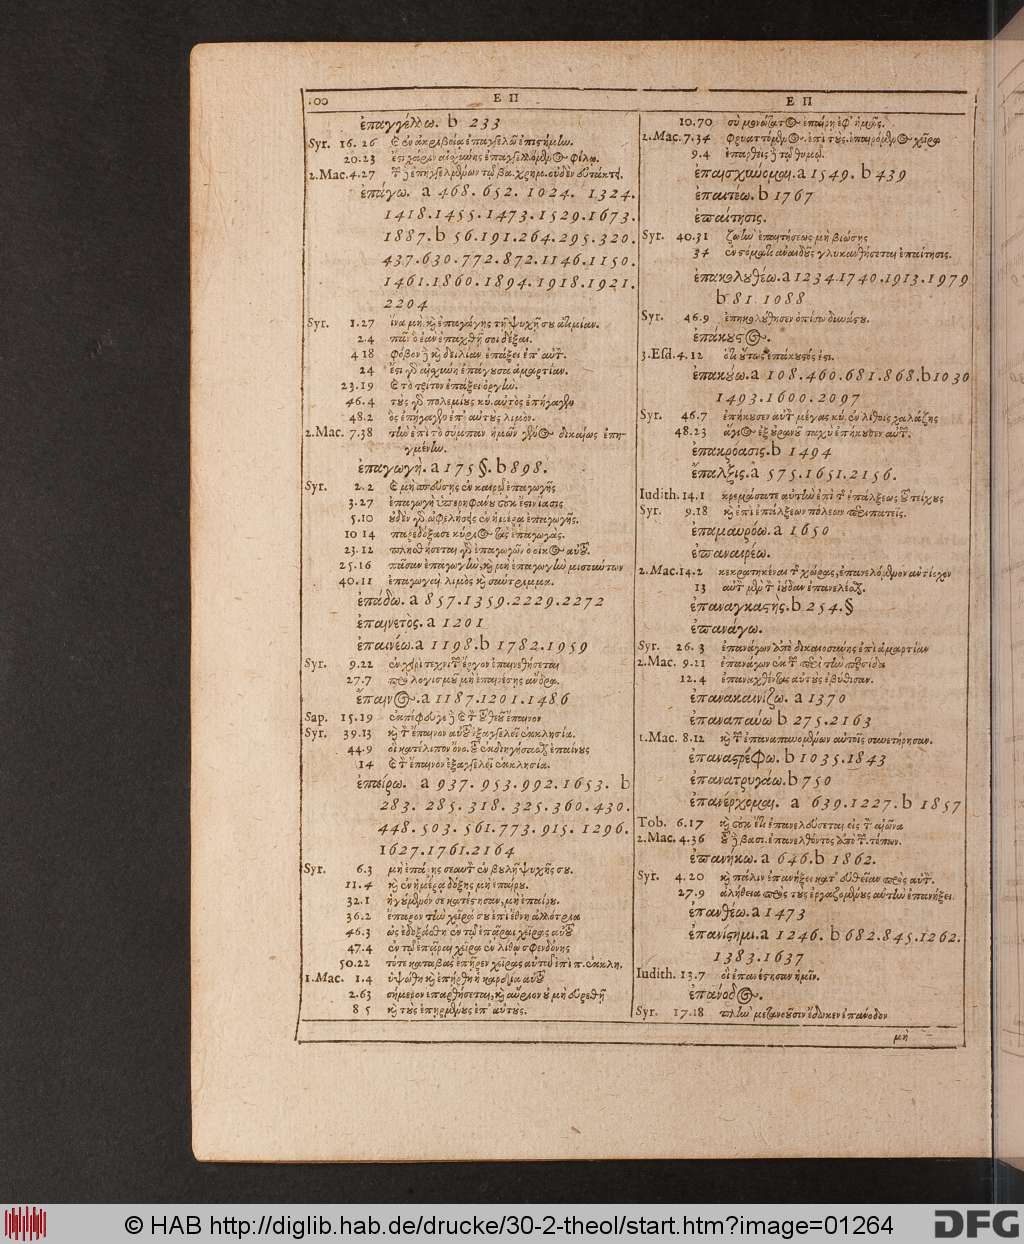 100 Ε Π
ἐπαγγέλλω. b 233
Syr. 16. 26 ἐν ἀκριβείᾳ ἐπαγγελῶ ἐπιστήμην.
20.23 ἔστι χάριν αἰσχύνης ἐπαγγελλόμενος φίλῳ.
2.Mac.4.27
ἐπάγω. a 468. 652. 1024. 1324.
1418.1455.1473.1529.1673.
1887. b 56.191.264.295.320.
437.630.772.872.1146.1150.
1461.1860.1894.1918.1921.
2204
Syr. 1.27 ἵνα μὴ καὶ ἐπαγάγῃς τῇ ψυχῇ σου ἀτιμίαν.
2.4 πᾶν ὃ ἐὰν ἐπαχθῇ σοι δέξαι.
4 18 φόβον καὶ δειλίαν ἐπάξει ἐπ' αὐτ.
24 ἔστι γὰρ αἰσχύνη ἐπάγουσα ἁμαρτίαν.
23.19 καὶ τὸ τρίτον ἐπάξει ὀργήν.
46.4 τοὺς γὰρ πολεμίους κυ. αὐτὸς ἐπήγαγεν
48.2 ὃς ἐπήγαγεν ἐπ' αὐτοὺς λιμόν.
2.Mac. 7.38 τὴν ἐπὶ τὸ σύμπαν ἡμῶν γένος δικαίως ἐπη-
γμένην.
ἐπαγωγή. a 175 §. b 898.
Syr. 2.2 καὶ μὴ σπεύσῃς ἐν καιρῷ ἐπαγωγῆς
3.27 ἐπαγωγῇ ὑπερηφάνου οὐκ ἔστιν ἴασις
5.10 οὐδὲν γὰρ ὠφελήσῃς ἐν ἡμέρᾳ ἐπαγωγῆς.
10 14 παρεδόξασε κύριος τὰς ἐπαγωγάς.
23.12 πλησθήσεται γὰρ ἐπαγωγῶν ὁ οἶκος αὐτοῦ.
25.16 πᾶσαν ἐπαγωγήν, καὶ μὴ ἐπαγωγὴν μισούντων
40.11 ἐπαγωγαὶ λιμὸς καὶ σύντριμμα.
ἐπᾴδω. a 857.1359.2229.2272
ἐπαινετος. a 1201
ἐπαινέω. a 1198. b 1782.1959
Syr. 9.22 ἐν χειρὶ τεχνιτ ἔργον ἐπαινεθήσεται
27.7 πρὸ λογισμοῦ μὴ ἐπαινέσῃς ἄνδρα.
ἔπαινος. a 1187.1201.1486
Sap. 15.19 ἐκπέφευγε καὶ τὸν τοῦ θεοῦ ἔπαινον
Syr. 39.13 καὶ τὸν ἔπαινον αὐτοῦ ἐξαγγελεῖ ἐκκλησία.
44.9 οἳ κατέλιπον ὄνο. τοῦ ἐκδιηγήσασθαι ἐπαίνους
14 καὶ τὸν ἔπαινον ἐξαγγελεῖ ἐκκλησία.
ἐπαίρω. a 937. 953.992.1653. b
283. 285. 318. 325.360.430.
448.503. 561.773. 915. 1296.
1627.1761.2164
Syr. 6.3 μὴ ἐπάρῃς σεαυτ ἐν βουλῇ ψυχῆς σου.
11.4 καὶ ἐν ἡμέρᾳ δόξης μὴ ἐπαίρου.
32.1 ἡγούμενόν σε κατέστησαν, μὴ ἐπαίρου.
36.2 ἔπαρον τὴν χεῖρά σου ἐπὶ ἔθνη ἀλλότρια
46.3 ὡς ἐδοξάσθη ἐν τῷ ἐπᾶραι χεῖρας αὐτοῦ
47.4 ἐν τῷ ἐπᾶραι χεῖρα ἐν λίθῳ σφενδόνης
50.22 τότε καταβὰς ἐπῆρεν χεῖρας αὐτοῦ ἐπὶ π. ἐκκλη.
1.Mac. 1.4 ὑψώθη καὶ ἐπήρθη ἡ καρδία αὐτοῦ
2.63 σήμερον ἐπαρθήσεται, καὶ αὔριον οὐ μὴ εὑρεθῇ
8 5 καὶ τοὺς ἐπηρμένους ἐπ' αὐτούς.
Ε Π
10.70 σὺ μονώτατος ἐπαίρῃ ἐφ' ἡμᾶς.
2.Mac.7.34 φρυαττόμενος ἐπὶ τοὺς ἐπαιρόμενος χεῖρα
9.4 ἐπαρθεὶς τῷ θυμῷ.
ἐπαισχύνομαι. a 1549. b 439
ἐπαιτέω. b 1767
ἐπαίτησις.
Syr. 40.31 ζωὴν ἐπαιτήσεως μὴ βιώσῃς
34 ἐν στόματι ἀναιδοῦς γλυκανθήσεται ἐπαίτησις.
ἐπακολουθέω. a 1234.1740.1913.1979
b 81. 1088
Syr. 46.9 ἐπηκολούθησεν ὀπίσω δυνάστου.
ἐπάκουστος.
3.Esd.4.12 ὅτι οὕτως ἐπάκουστός ἐστι.
ἐπακούω. a 108.460.681.868. b 1030
1493.1600.2097
Syr. 46.7 ἐπήκουσεν αὐτ μέγας κυ. ἐν λίθοις χαλάζης
48.23 ἅγιος ἐξ οὐρανοῦ ταχὺ ἐπήκουσεν αὐτ.
ἐπακρόασις. b 1494
ἔπαλξις. a 575.1651.2156.
Iudith. 14.1 κρεμάσατε αὐτὴν ἐπὶ τ ἐπάλξεως τοῦ τείχους
Syr. 9.18 καὶ ἐπὶ ἐπάλξεων πόλεων περιπατεῖς.
ἐπαμαυρόω. a 1650
ἐπαναιρέω.
2.Mac.14.2 κεκρατηκέναι τ χώρας, ἐπανελόμενον ἀντίοχον
13 αὐτ μὲν τ ἰούδαν ἐπανελέσθαι.
ἐπαναγκαστής. b 254. §
ἐπανάγω.
Syr. 26. 3 ἐπανάγων ἀπὸ δικαιοσύνης ἐπὶ ἁμαρτίαν
2.Mac. 9.21 ἐπανάγων ἐκ τ περὶ τὴν περσίδα
12.4 ἐπαναχθέντας αὐτοὺς ἐβύθισαν.
ἐπανακαινίζω. a 1370
ἐπαναπαύω b 275.2163
1.Mac. 8.12 καὶ τ ἐπαναπαυομένων αὐτοῖς συνετήρησαν.
ἐπαναστρέφω. b 1035.1843
ἐπανατρυγάω. b 750
ἐπανέρχομαι. a 639.1227. b 1857
Tob. 6.17 καὶ οὐκ ἔτι ἐπανελεύσεται εἰς τ αἰῶνα
2.Mac.4.36 τοῦ βασι. ἐπανελθόντος ἀπὸ τ. τόπων.
ἐπανήκω. a 646. b 1862.
Syr. 4.20 καὶ πάλιν ἐπανήξει κατ' εὐθεῖαν πρὸς αὐτ.
27.9 ἀλήθεια πρὸς τοὺς ἐργαζομένους αὐτὴν ἐπανήξει
ἐπανθέω. a 1473
ἐπανίστημι. a 1246. b 682.845.1262.
1383.1637
Iudith. 13.7 οἳ ἐπανέστησαν ἡμῖν.
ἐπάνοδος.
Syr. 17.18 πλὴν μετανοοῦσιν ἔδωκεν ἐπάνοδον
μὴ
© HAB http://diglib.hab.de/drucke/30-2-theol/start.htm?image=01264
DFG